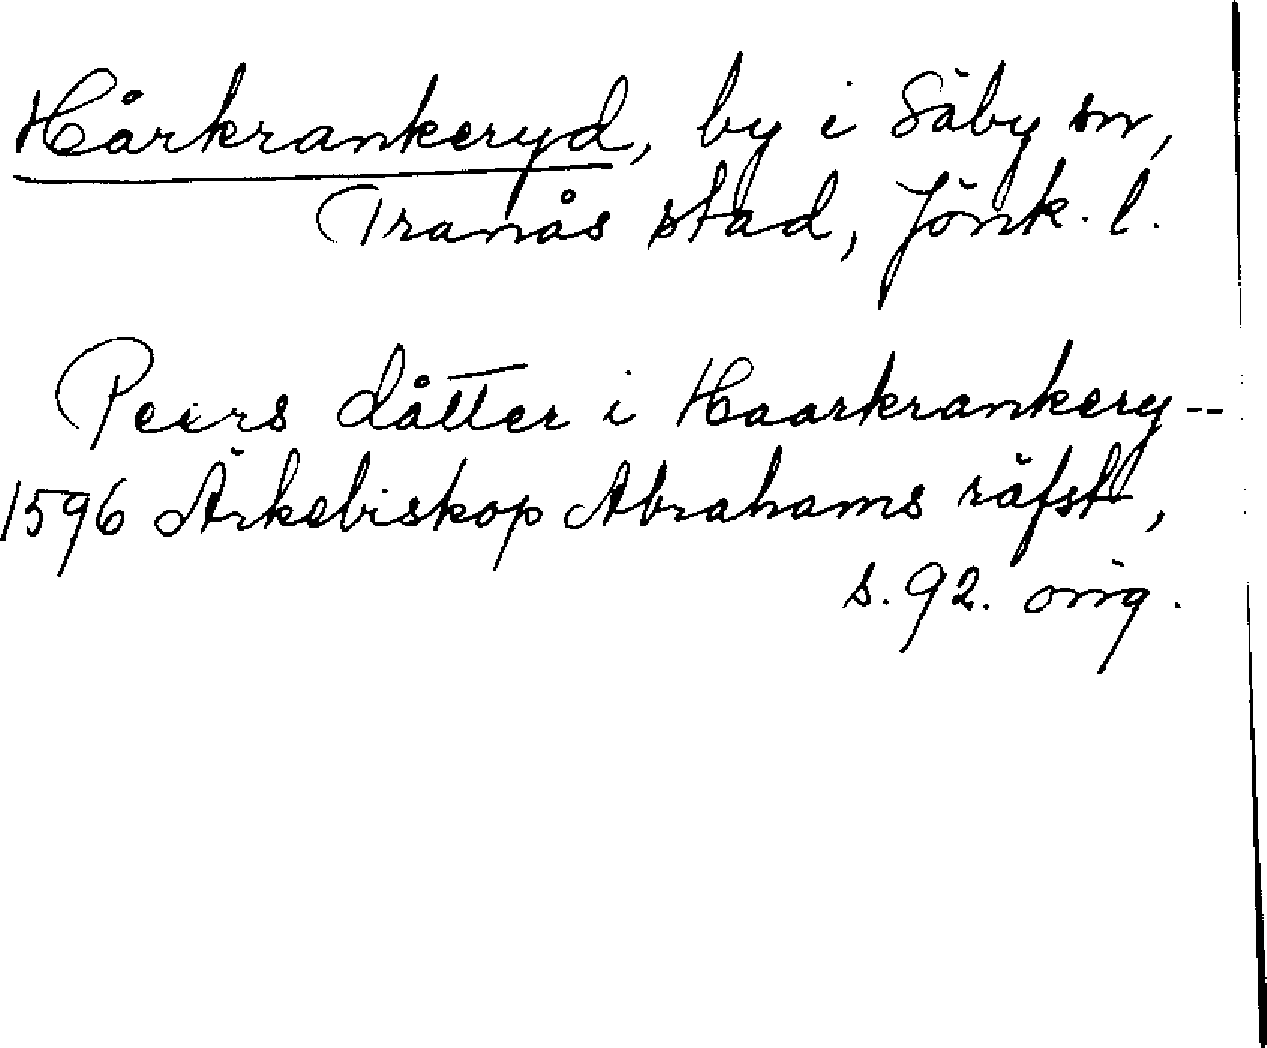 Hårkrankeryd, by i Säby sn,
Tranås stad, Jönk. l.
Peers dåtter i Haarkrankery--
1596 Ärkebiskop Abrahams räfst,
s. 92. orig.